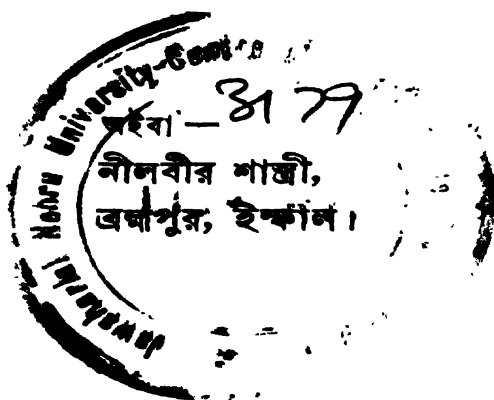 Jawaharlal Nehru University
অইবা —
নীলবীর শাস্ত্রী,
ব্রহ্মপুর, ইম্ফাল।